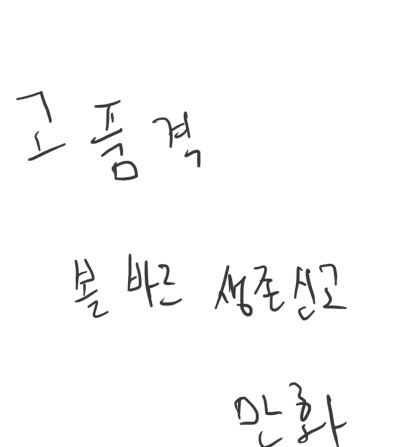 고품격
볼 바른 생존신고
만화